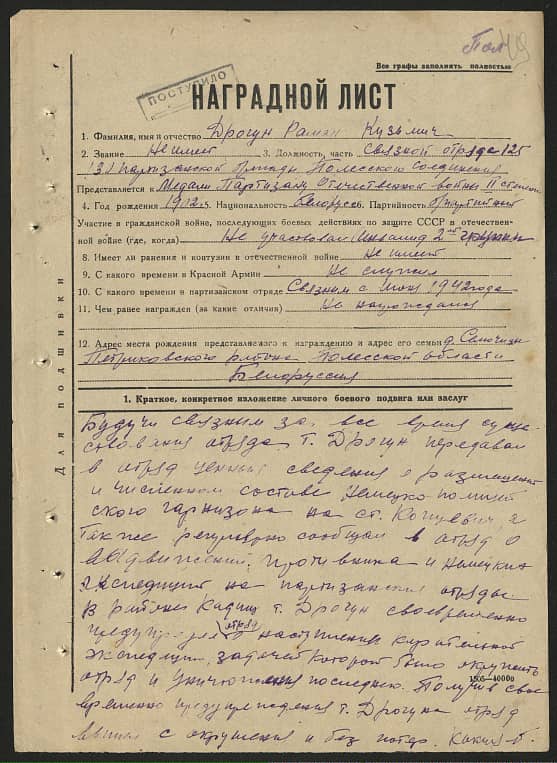 Пол 49
Все графы заполнять полностью
ПОСТУПИЛО
НАГРАДНОЙ ЛИСТ
1. Фамилия, имя и отчество Дрогун Раман Кузьмич
2. Звание Не имеет 3. Должность, часть связной отряда 125
131 партизанской бригады Полесского Соединения
Представляется к Медали Партизану Отечественной войны II степени
4. Год рождения 1902г. 5. Национальность Белорус 6. Партийность б/партийный
Участие в гражданской войне, последующих боевых действиях по защите СССР в отечествен-
ной войне (где, когда) Не участвовал инвалид 2-ой группы
8. Имеет ли ранения и контузии в отечественной войне Не имеет
9. С какого времени в Красной Армии Не служил
10. С какого времени в партизанском отряде Связным с 1942 года
11. Чем ранее награжден (за какие отличия) Не награждался
12. Адрес места рождения представляемого к награждению и адрес его семьи д.
Петриковского района Полесской области
Белоруссия
Для подшивки
1. Краткое, конкретное изложение личного боевого подвига или заслуг
Будучи связным за все время суще-
ствования отряда т. Дрогун передавал
в отряд ценные сведения о размещении
и численном составе немецко-полицей
ского гарнизона на ст. Копцевичи, а
также регулярно сообщал в отряд о
передвижений противника и немецких
экспедиций на партизанские отряды
В районе т. Дрогун своевременно
предупредил отряд о наступлении карательной
экспедиции, задачей которой было окружить
отряд и уничтожения последнего. Получив свое
временно предупреждения т. Дрогуна отряд
вышел с окружения и без потерь.
1505—40000